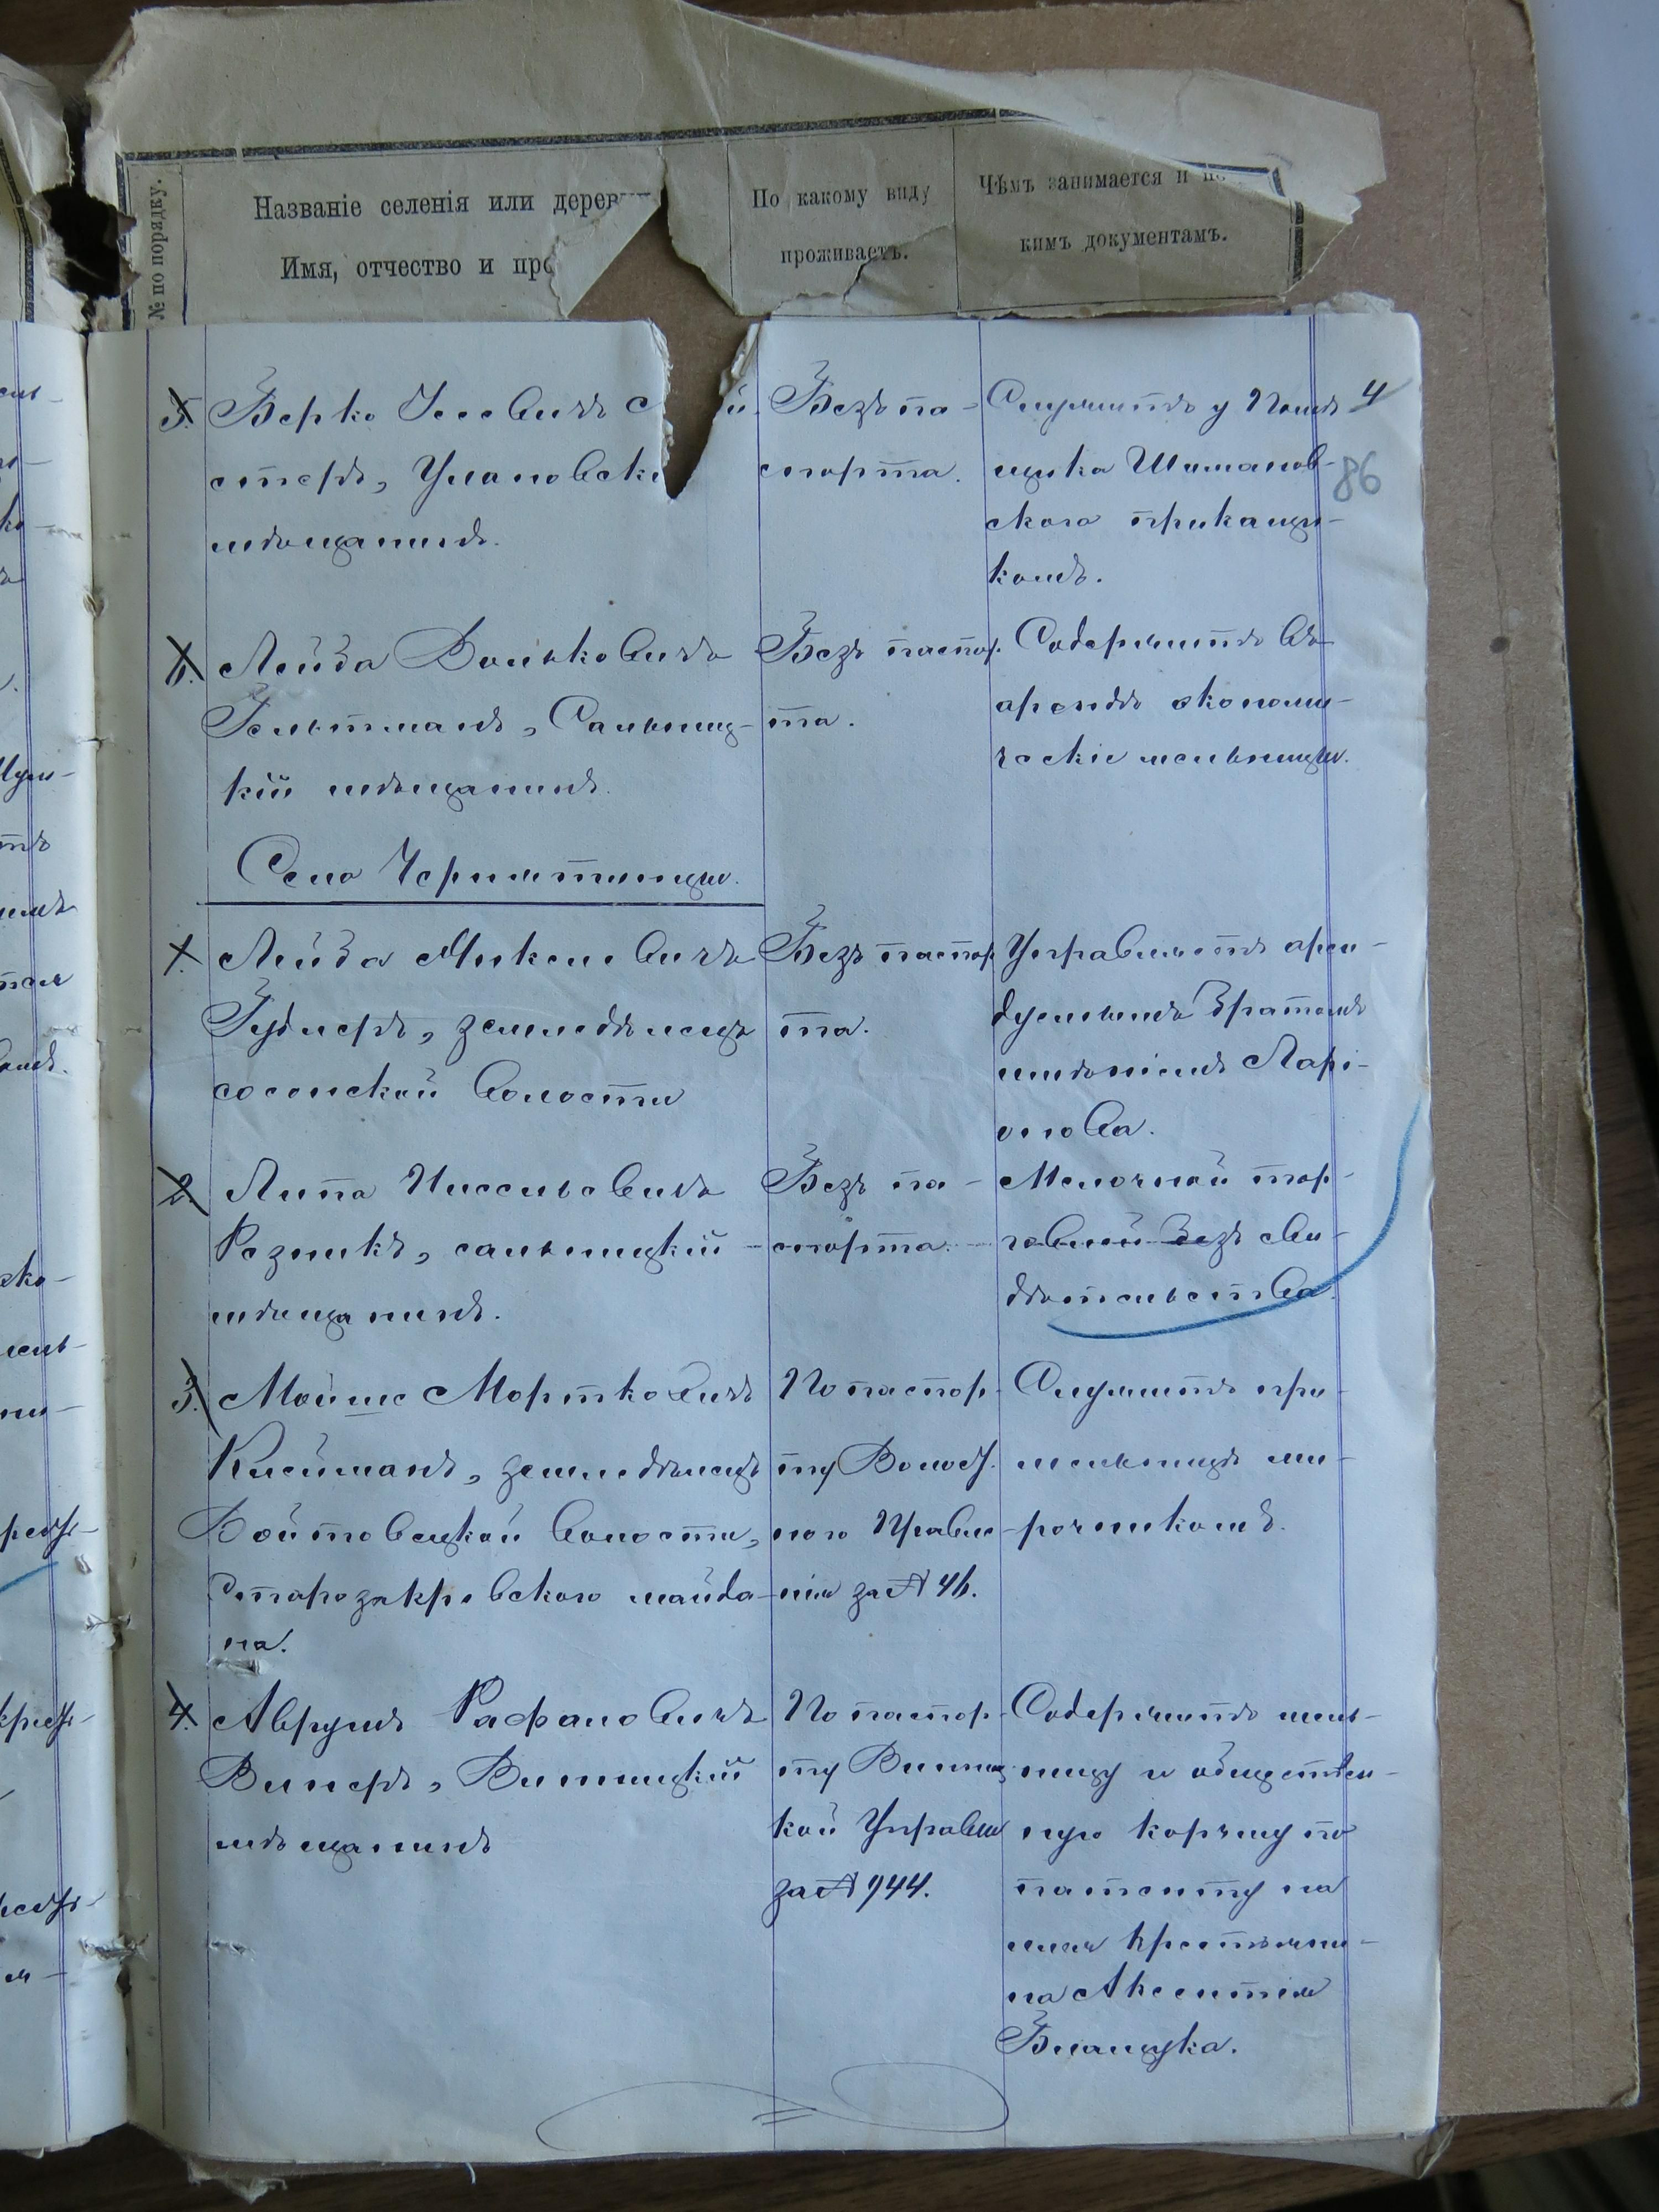 № по порядку.
Названіе селенія или дерев
Имя, отчество и про
По какому виду
проживаетъ.
Чѣмъ занимается и по
кимъ документамъ.
4
86
5. Берко Іосевичъ С й-
стеръ, Улановскі
мѣщанинъ.
Безъ па-
спорта.
Служитъ у Помѣ
щика Шиманов-
скаго прикащи-
комъ.
6. Лейба Волько вичъ
Гельтманъ, Сальниц-
кій мѣщанинъ.
Безъ паспор.
та.
Содержитъ въ
арендѣ экономи-
ческіе мельницы.
Село Чернятинцы.
1. Лейба Микелевичъ
Гудлеръ, земледѣлецъ
сосонской волости
Безъ паспор
та.
Управляетъ арен-
дуемымъ братомъ
имѣніемъ Ларі-
онова.
2. Липа Нисселевичъ
Резникъ, сальницкій
мѣщанинъ.
Безъ па-
спорта.
Мелочной тор-
говлей безъ сви-
дѣтельства.
3. Мойше Мортковичъ
Клейманъ, земледѣлецъ
Войтовецкой волости,
Старозакревского майда-
на.
По паспор-
ту Волост.
ного Правле
нія за № 46.
Служитъ при
мельницѣ ми-
рочникомъ.
4. Аврумъ Рафаловичъ
Винеръ, Винницкій
мѣщанинъ
По паспор-
ту Винниц
кой Управы
за № 944.
Содержитъ мель-
ницу и обществен-
ную корчму по
патенту на
имя крестьяни-
на Аксентія
Блащука.